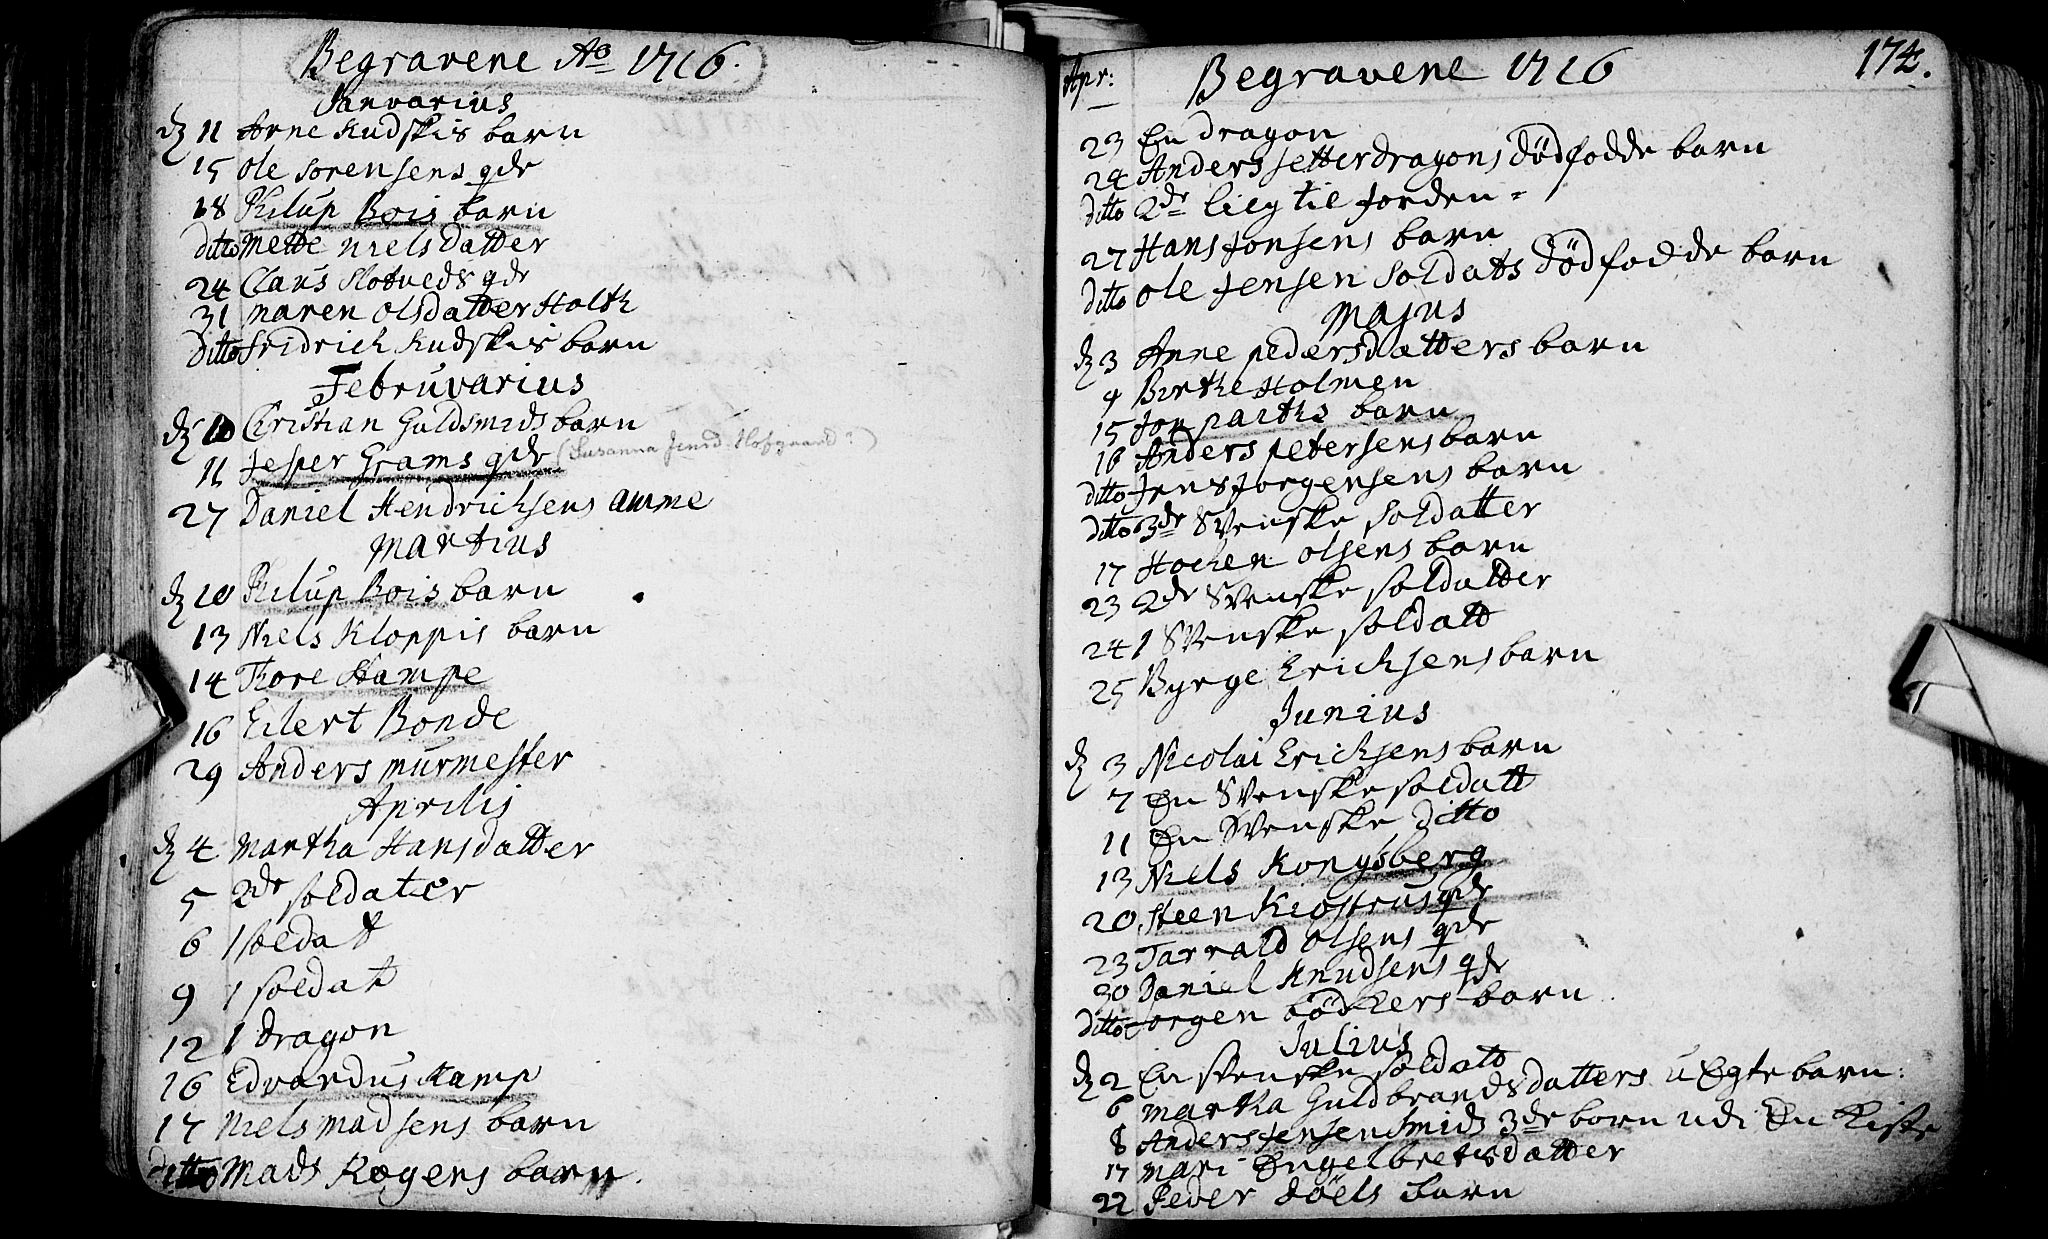 Begravene Aō 1716.
Januarius
dz 11 Arne Kudskis barn
15 Ole Sørensens qde
18 Philup Bois barn
ditto Mette Nielsdatter
24 Claus Slotveds qde
31 Maren Olsdatter Holth
ditto Fridrich Kudskis barn
Februarius
dz 10 Christian Guldsmids barn
11 Jesper Grams qde (Susanna Jensd. Hofgaard?)
27 Daniel Hendrichsens amme
Martius
dz 10 Philup Bois barn
13 Niels Kloppis barn
14 Thore Kampe
16 Eilert Bonde
29 Anders murmester
Aprilis
dz 4 Martha Hansdatter
5 2de soldater
6 1 soldat
9 1 soldat
12 1 dragon
16 Edvardus Kamp
17 Niels Madsens barn
ditto Mads Rogens barn.
Apr: Begravene 1716 174.
23 En dragon
24 Anders setterdragons dødfødde barn
ditto 2de liig til Jorden
27 Hans Jonsens barn
ditto Ole Jensen Soldats dødfødde barn
Majus
dz 3 Anne pedersdatters barn
9 Birthe Holmen
15 Jon parths barn
16 Anders petersens barn
ditto Jens Jorgensens barn
ditto 3de Svenske soldatter
17 Hochen Olsens barn
23 2de Svenske soldatter
24 1 Svenske soldatt
25 Byrge Erichsens barn
Junius
dz 3 Nicolai Erichsens barn
7 En Svenske soldatt
11 En Svenske ditto
13 Niels Kongsberg
20 Steen Klostrus qde
23 Tarrald Olsens qde
30 Daniel Knudsens qde
ditto Jorgen bødkers barn
Julius
dz 2 En svenske soldatt
6 Martha Guldbrandsdatters uægte barn:
8 Anders Jensen Smids 3de børn udi En Kiste
17 Mari Engelbretsdatter
22 Peder Døels barn